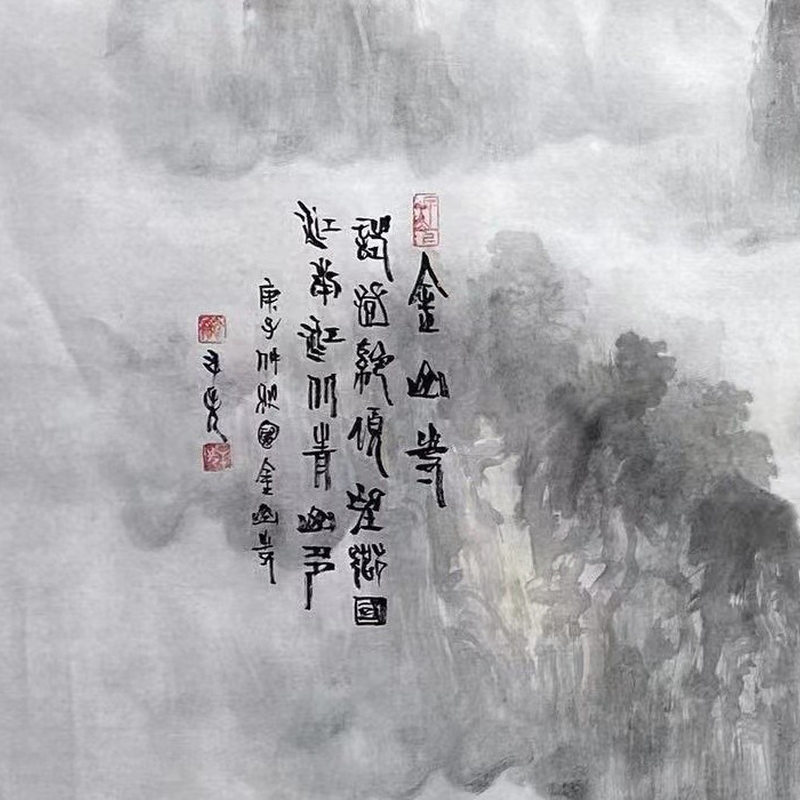 金山寺
試登絕頂望鄉國
江南江北青山多
庚子仲秋金山寺